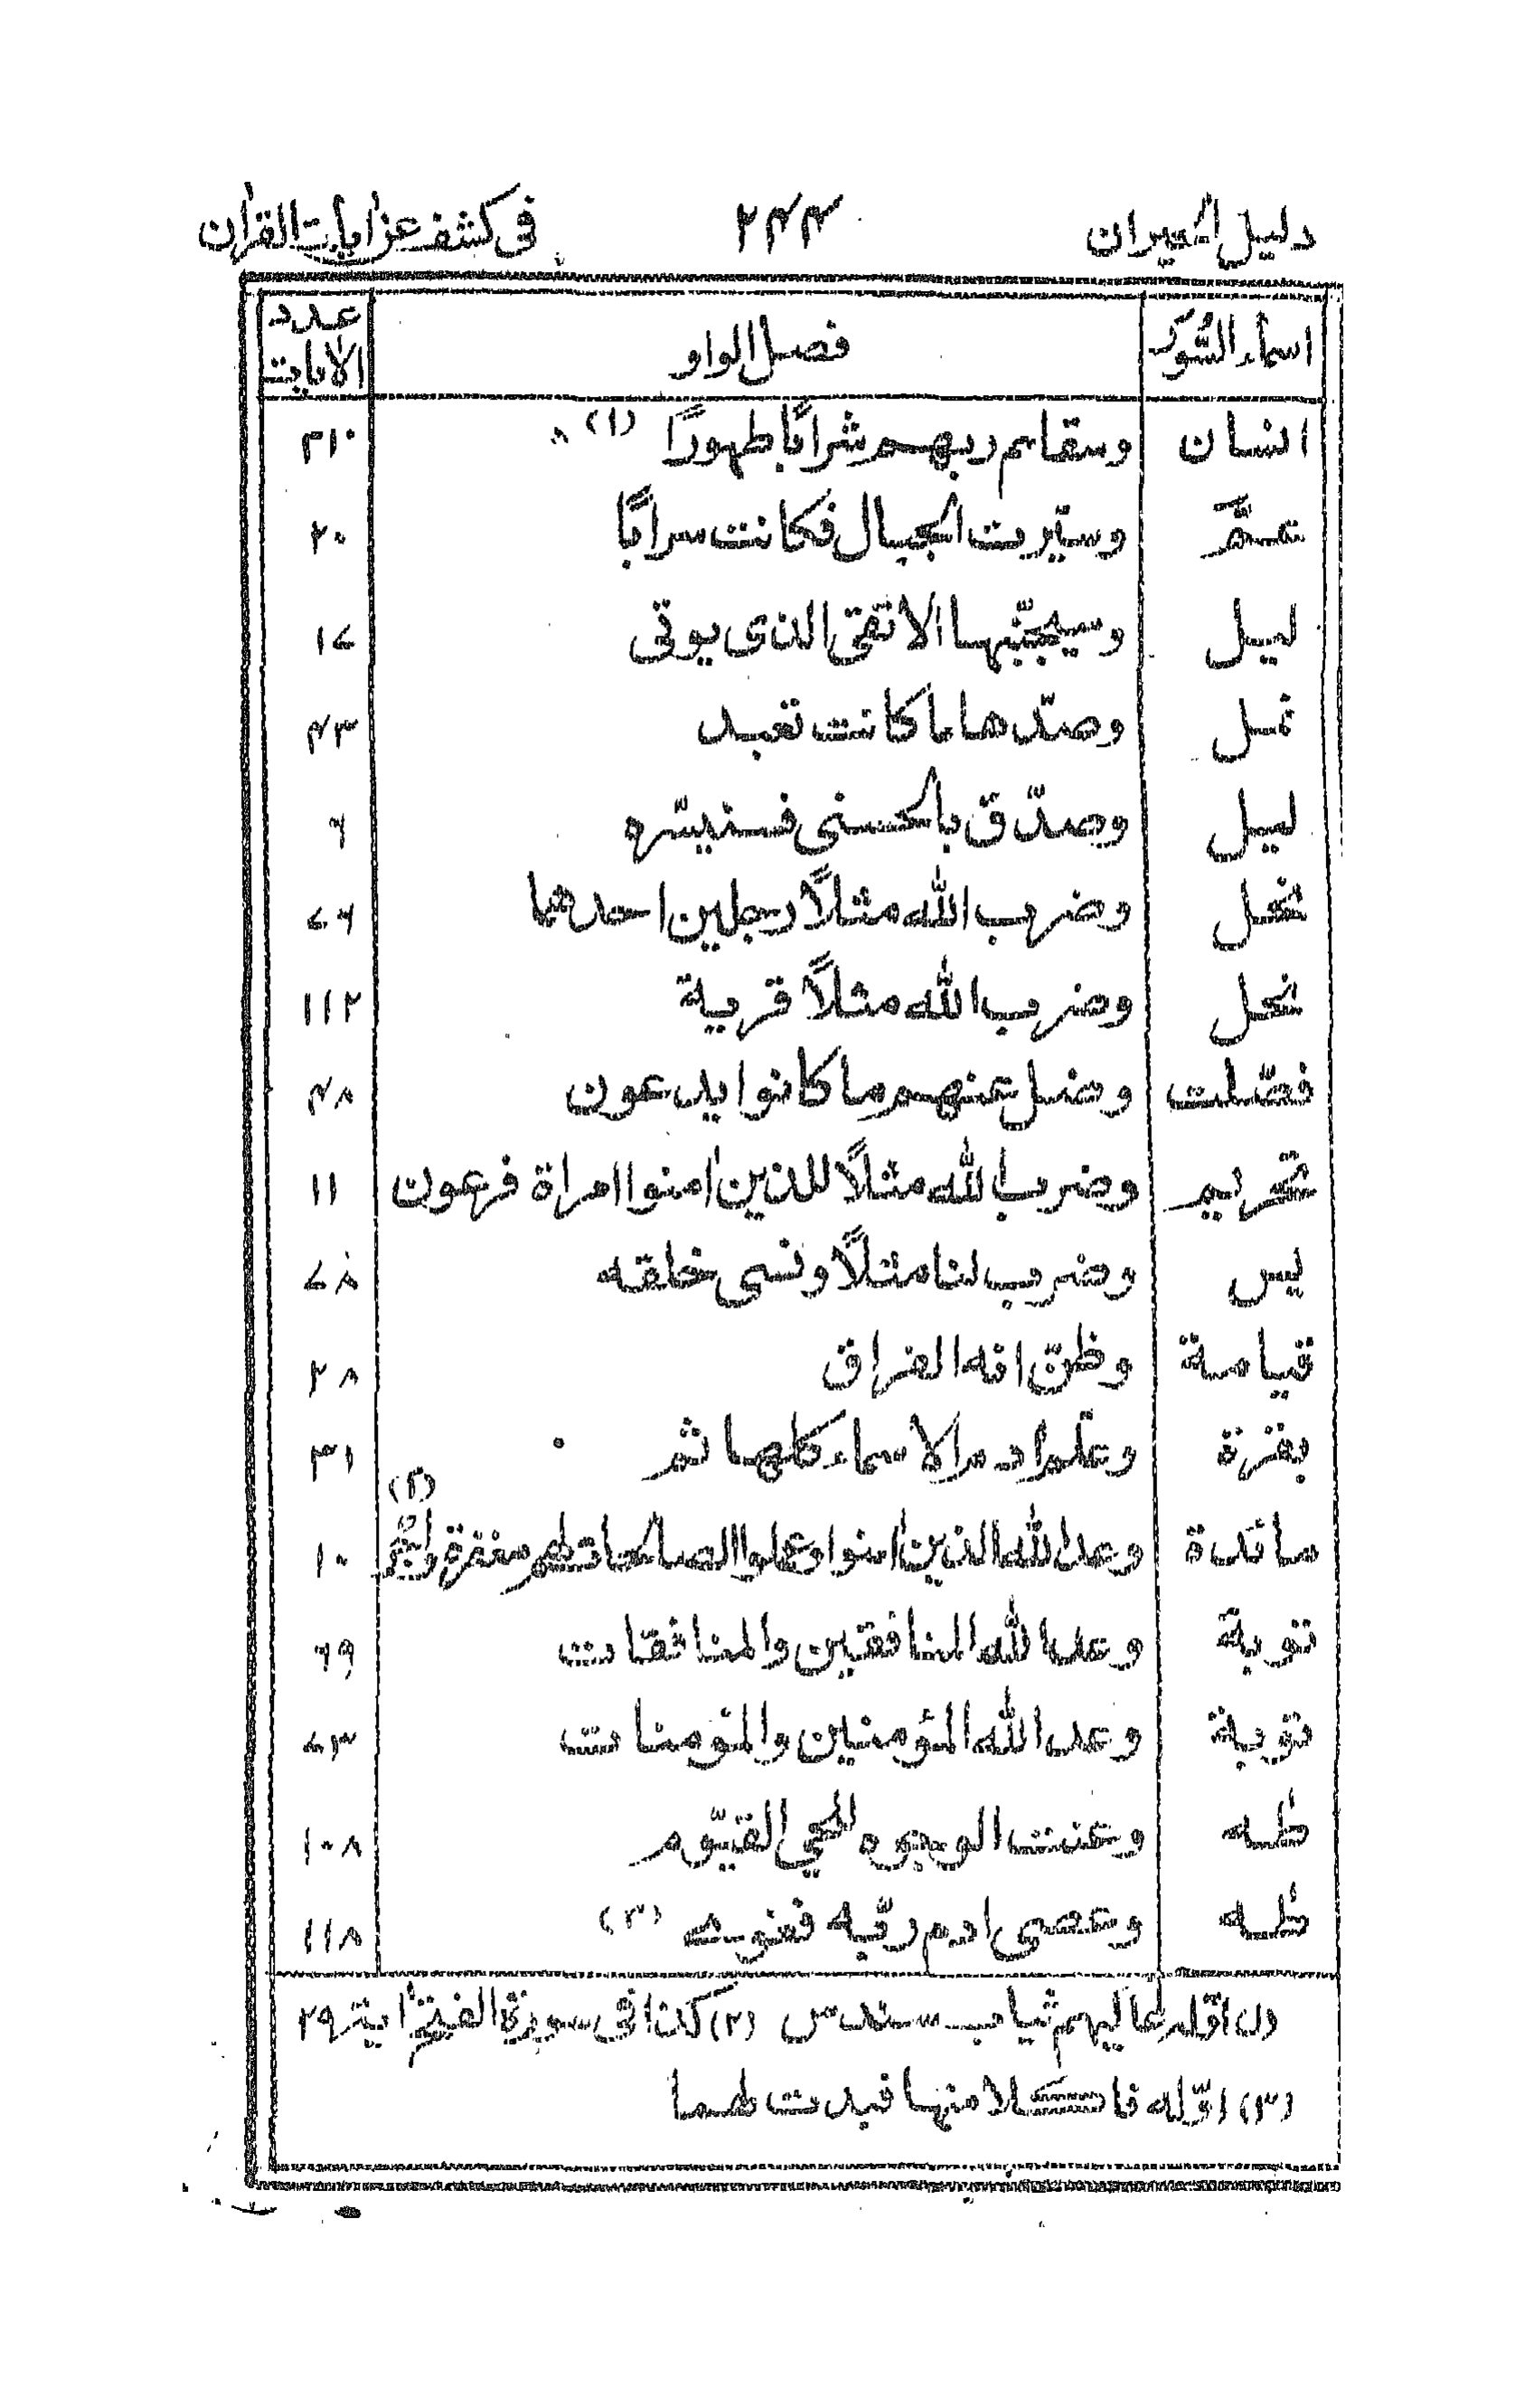 دليل الحيران ٢٤٤ فى كشف عن ايات القران
اسماء السُّوَر فصل الواو عدد الايات
انسان وسقاهم ربهم شرابًا طهورًا (١)
عمّ وسيّرت الجبال فكانت سرابًا ٢٠
ليل وسيجنّبها الاتقى الذى يوتى ١٧
نمل وصدّها ما كانت تعبد ٤٣
ليل وصدّق بالحسنى فسنيسّره ٦
نحل وضرب الله مثلاً رجلين احدهما ٧٦
نحل وضرب الله مثلاً قرية ١١٢
فصّلت وضل عنهم ما كانوا يدعون ٤٨
تحريم وضرب الله مثلاً للذين امنوا امراة فرعون ١١
يس وضرب لنا مثلاً ونسى خلقه ٧٨
قيامة وظنّ انه الفراق ٢٨
بقرة وعلّم ادم الاسماء كلها ثم ٣١
مائدة وعد الله الذين امنوا وعملوا الصالحات لهم مغفرة وَاَجْرٌ (٢) ١٠
توبة وعد الله المنافقين والمنافقات ٦٩
توبة وعد الله المؤمنين والمؤمنات ٧٣
طٰه وعنت الوجوه للحي القيّوم ١٠٨
طٰه وعصى ادم ربّه فغوى (٣) ١١٨
(١) اوّله عاليهم ثياب سندس (٢) كذا فى سورة الفتح اٰية ٢٩
(٣) اوّله فاكلا منها فبدت لهما